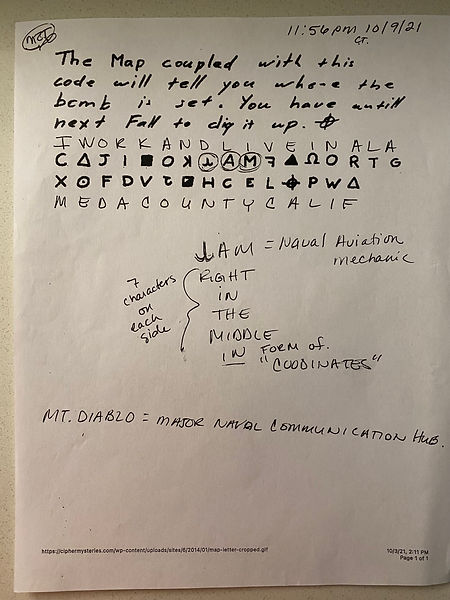 11:56 pm 10/9/21
CT.
The Map coupled with this
code will tell you where the
bomb is set. You have untill
next Fall to dig it up. ⌖
I WORK AND LIVE IN ALA
C Δ J I ■ O ꓘ A M ▲ Ω O R T G
X O F D V H C E L ⌖ P W Δ
MEDA COUNTY CALIF
AM = Naval Aviation
mechanic
7
characters
on
each
side
RIGHT
IN
THE
MIDDLE
IN FORM of.
"COODINATES"
MT. DIABLO = MAJOR NAVAL COMMUNICATION HUB.
https://ciphermysteries.com/wp-content/uploads/sites/6/2014/01/map-letter-cropped.gif
10/3/21, 2:11 PM
Page 1 of 1